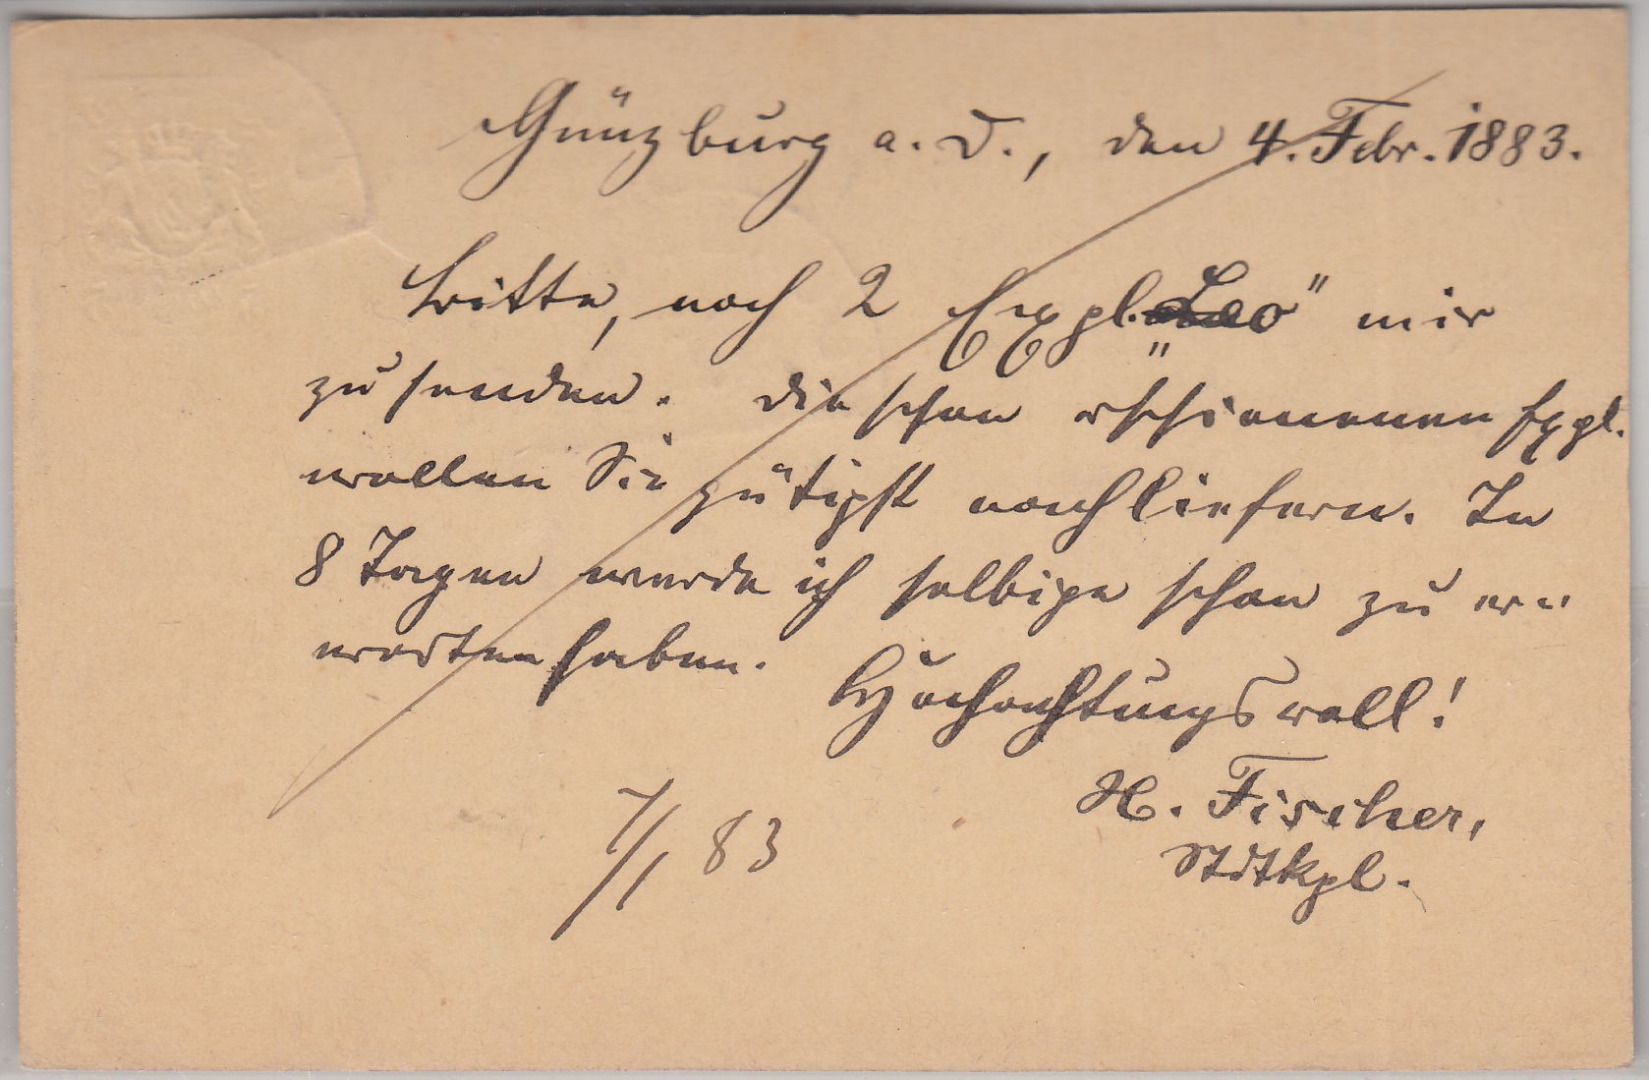 Günzburg a. D., den 4. Febr. 1883.
Bitte, noch 2 Exxpl. „Leo" mir
zu senden. Die schon erschienenen Expl.
wollen Sie gütigst nachliefern. In
8 Tagen werde ich selbige schon zu er„
warten haben.
Hochachtungsvoll!
H. Fischer,
Stdtkpl.
7/1 83